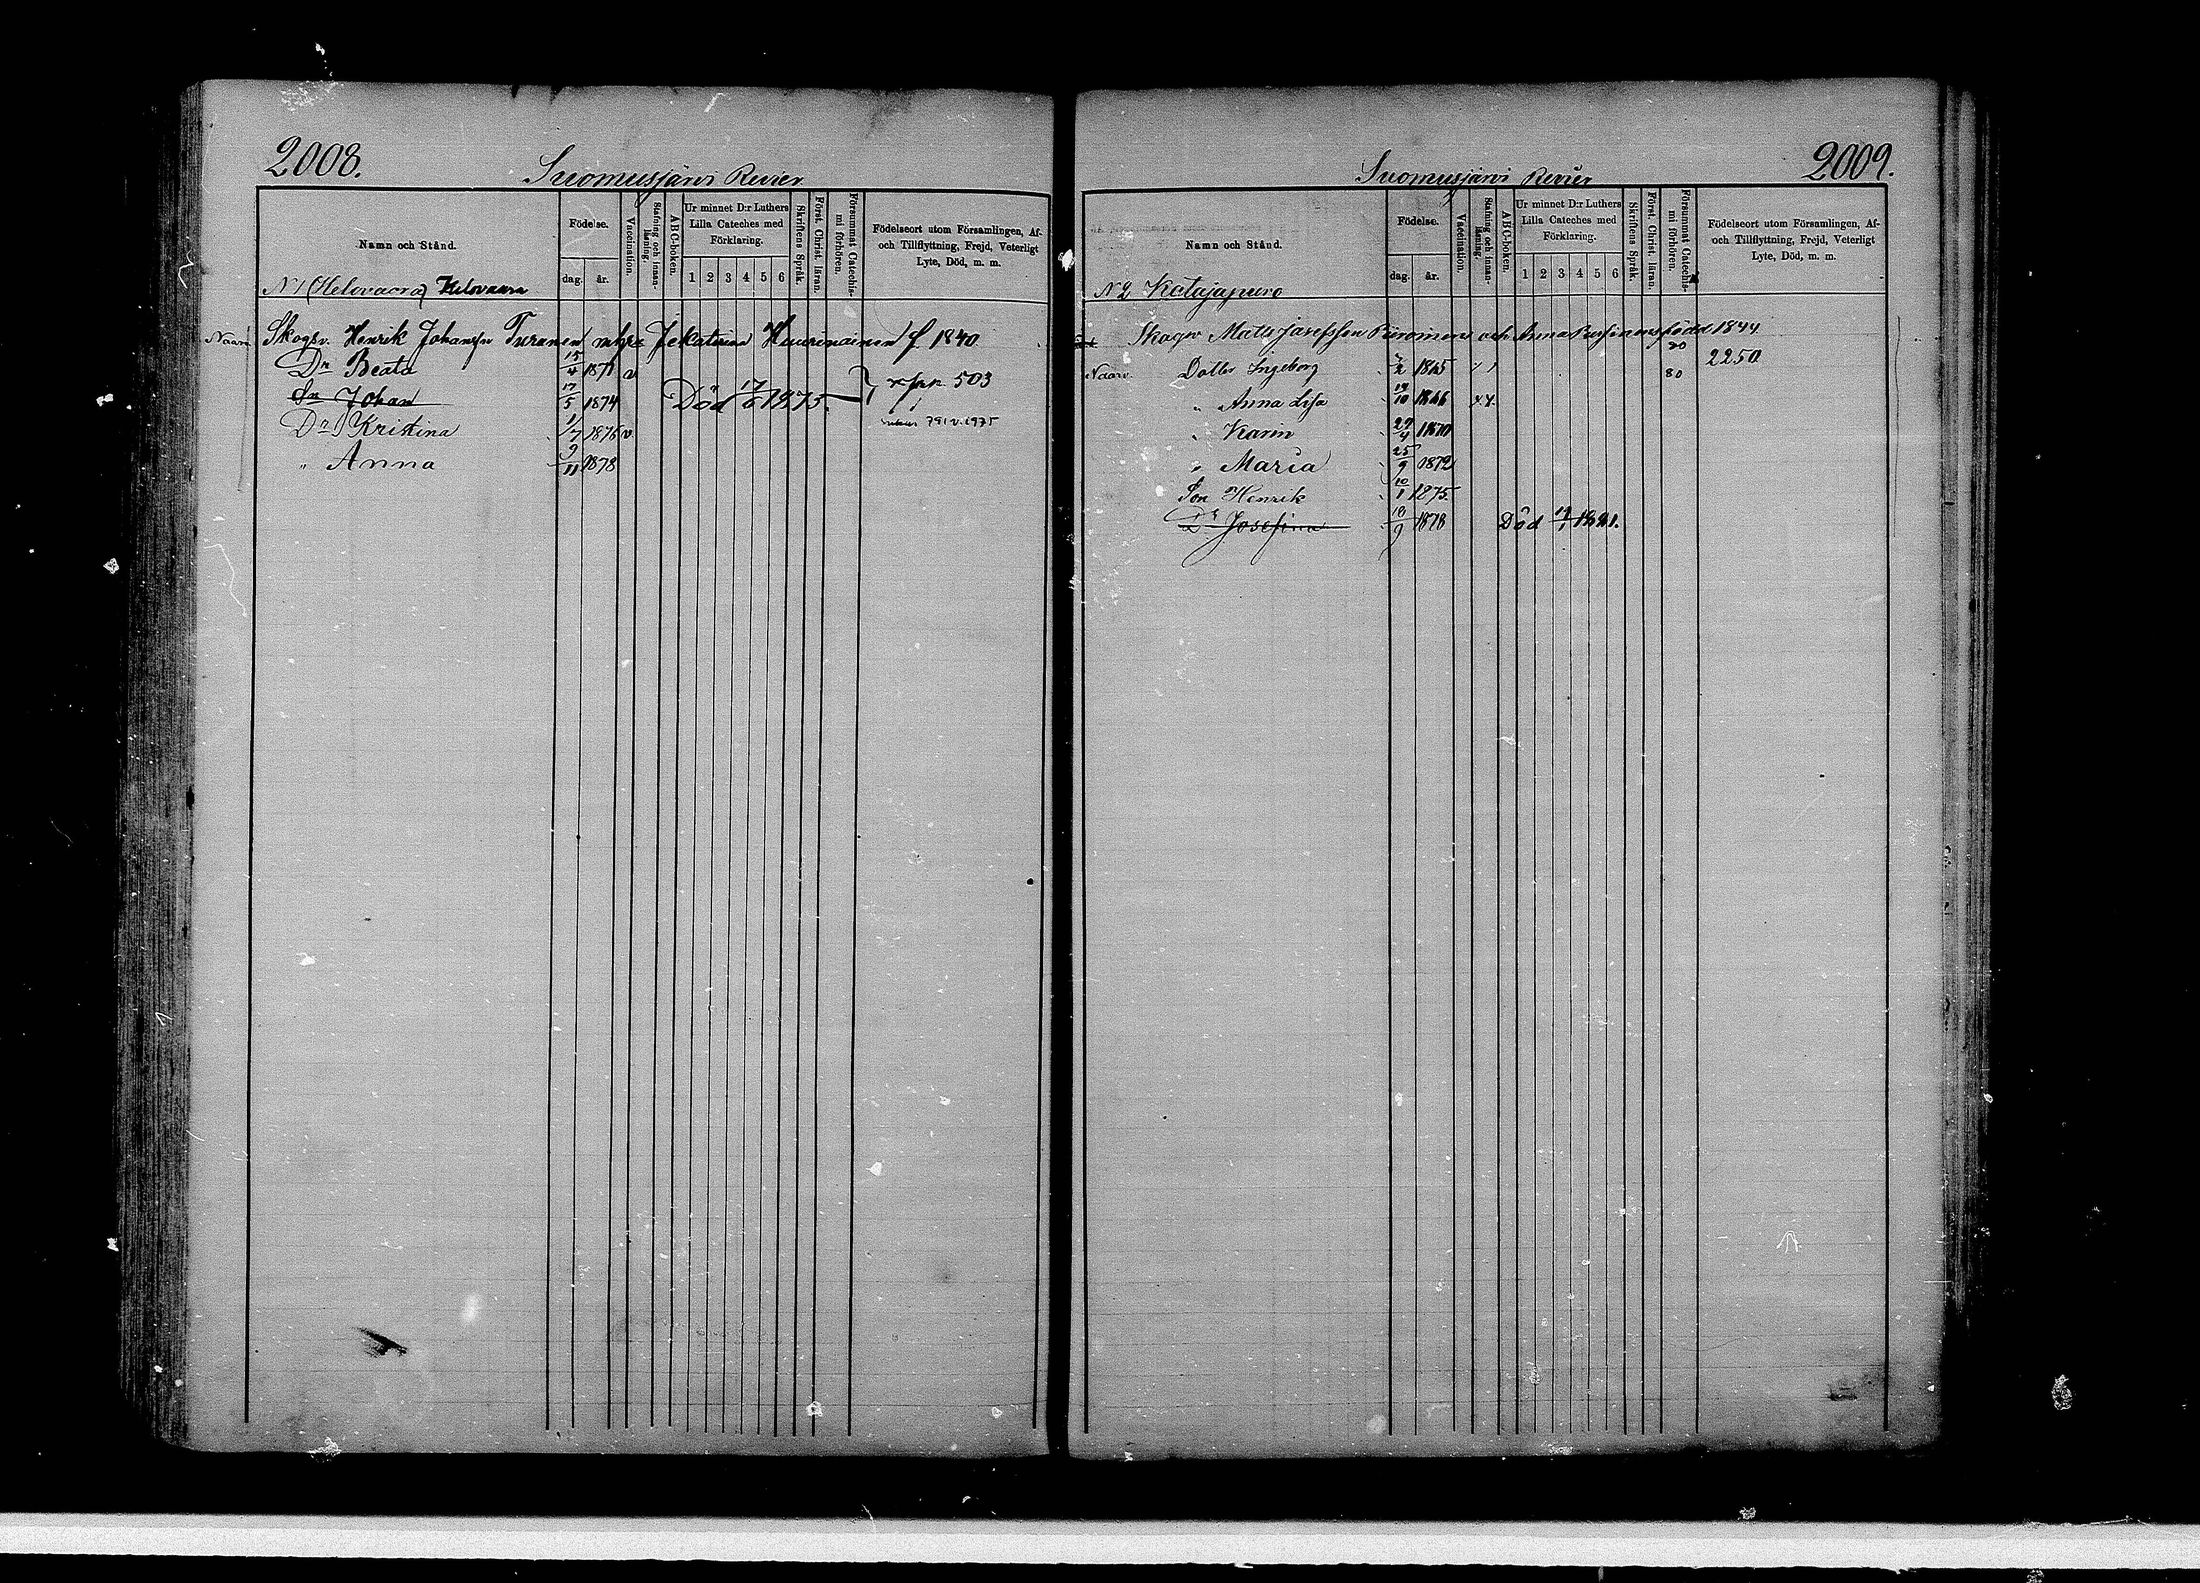 2008.
Suomusjärvi Revier
Namn och Stånd.
Födelse.
dag.
år.
Vaccination.
Stafning och innan-
läsning.
ABC-boken.
Ur minnet D:r Luthers
Lilla Cateches med
Förklaring.
1 2 3 4 5 6
Skriftens Språk.
Först. Christ. läran.
Försummat Catechis-
mi förhören.
Födelseort utom Församlingen, Af-
och Tillflyttning, Frejd, Veterligt
Lyte, Död, m. m.
N 1 (Helovaara) Helovaara
Naarv. Skogsv. Henrik Johansson Turunen m. h. Katarina Heverinainen f. 1840
Dr Beata 15/4 1871 v
Sn Johan 17/5 1874 Död 17/6 1875. 503
Dr Kristina 1/7 1876 v 791 v. 1975
" Anna 9/11 1878
2009.
Suomusjärvi Revier
Namn och Stånd.
Födelse.
dag.
år.
Vaccination.
Stafning och innan-
läsning.
ABC-boken.
Ur minnet D:r Luthers
Lilla Cateches med
Förklaring.
1 2 3 4 5 6
Skriftens Språk.
Först. Christ. läran.
Försummat Catechis-
mi förhören.
Födelseort utom Församlingen, Af-
och Tillflyttning, Frejd, Veterligt
Lyte, Död, m. m.
N 2 Katajapuro
Skogv Matts Josefsson Piiroinen och Anna född 1844
80
2250
Naarv. Dotter Ingeborg 1865 80
" Anna Lisa 19/10 1866
" Karin 27/4 1870
" Maria 25/9 1872
Son Henrik 10/1 1875
Dr Josefina 18/9 1878 Död 1881.